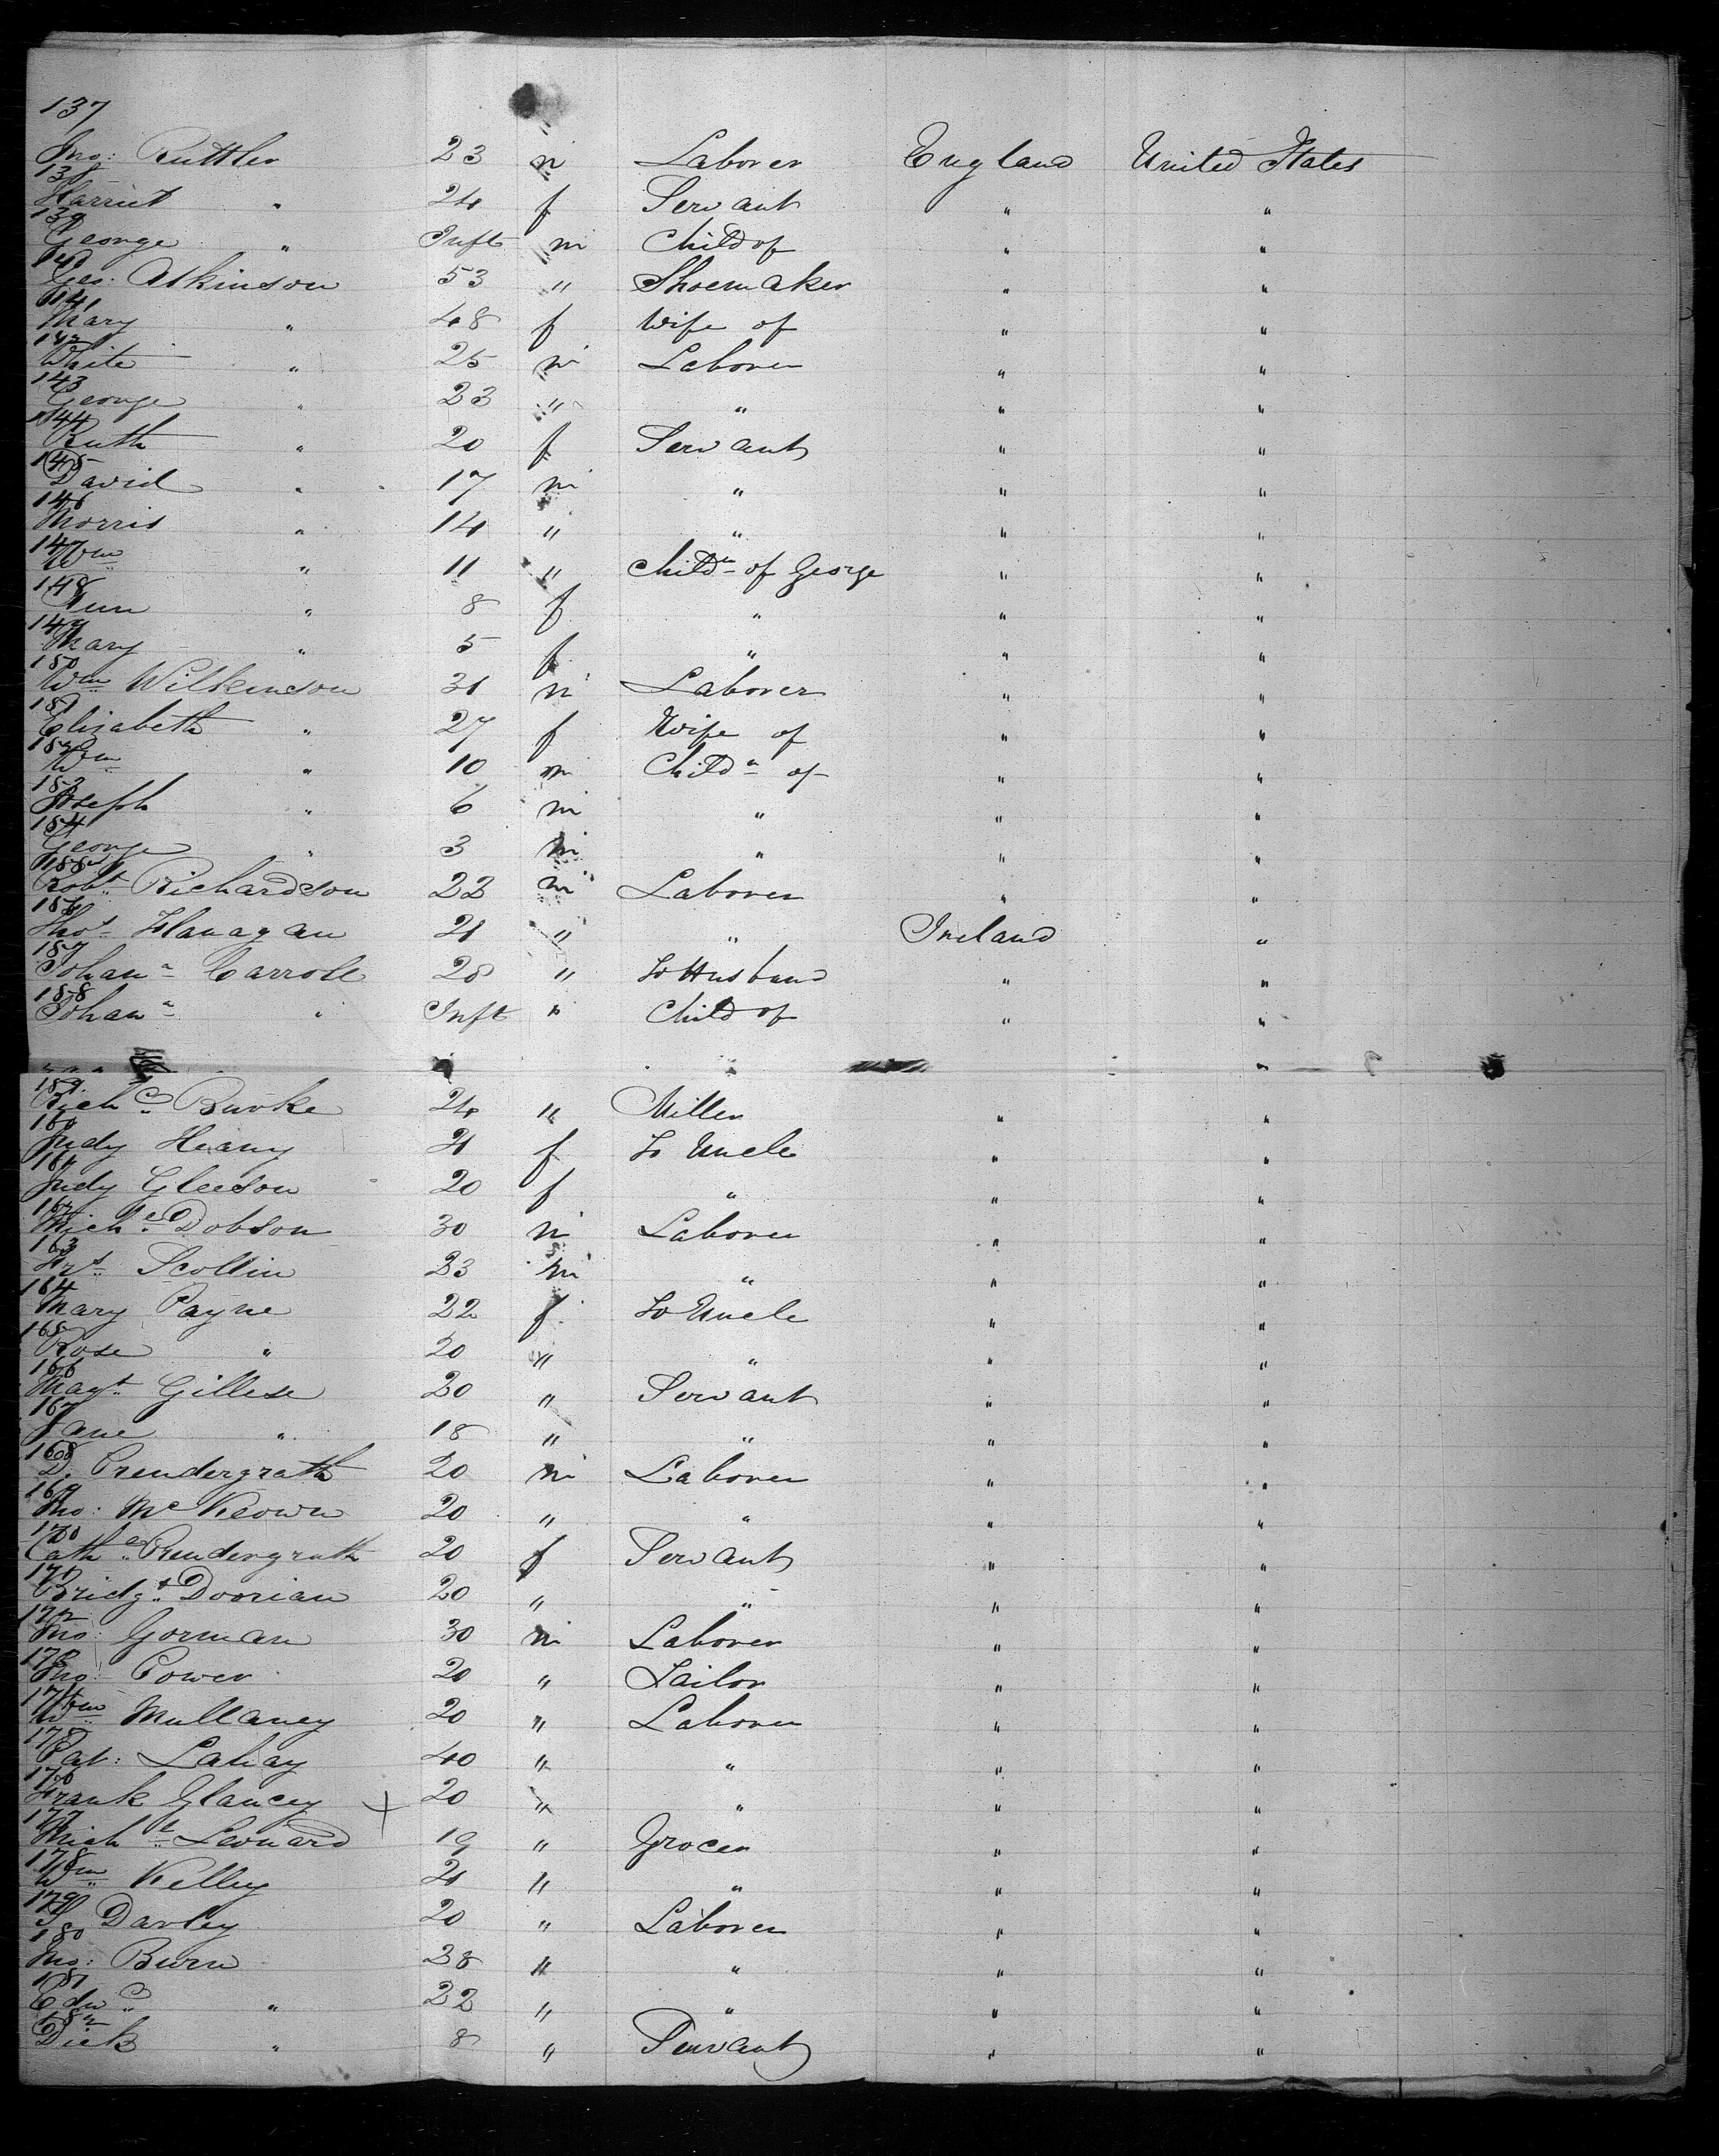 137
Jno: Ruttler 23 m Laborer England United States
138
Harriet " 24 f Servant " "
139
George " Inft m Child of " "
140
Geo: Atkinson 53 " Shoemaker " "
141
Mary " 48 f Wife of " "
142
White " 25 m Laborer " "
143
George " 23 " " " "
144
Ruth " 20 f Servant " "
145
David " 17 m " " "
146
Morris " 14 " " " "
147
Wm " 11 " Childn of George " "
148
Ann " 8 f " " "
149
Mary " 5 f " " "
150
Wm Wilkinson 31 m Laborer " "
151
Elisabeth " 27 f Wife of " "
152
Wm " 10 m Childn of " "
153
Joseph " 6 m " " "
154
George " 3 m " " "
155
Robt Richardson 22 m Laborer " "
156
Thos Flanagan 21 " " Ireland "
157
Johana Carroll 28 " to Husband " "
158
Johana " Inft " Child of " "
159
Richd Burke 24 " Miller " "
160
Judy Heany 21 f to Uncle " "
161
Judy Gleeson 20 f " " "
162
Miche Dobson 30 m Laborer " "
163
Scollin 23 m " " "
164
Mary Payne 22 f to Uncle " "
165
Rose " 20 " " " "
166
Magt Gillese 20 " Servant " "
167
Jane " 18 " " " "
168
D. Prendergrath 20 m Laborer " "
169
Jno: McKeown 20 " " " "
170
Cathe Prendergrath 20 f Servant " "
171
Bridgt Doorian 20 " " " "
172
Jno: Gorman 30 m Laborer " "
173
Jno: Power 20 " Tailor " "
174
Wm Mullaney 20 " Laborer " "
175
Pat: Lahay 40 " " " "
176
Frank Glancey 20 " " " "
177
Michl Leonard 19 " Grocer " "
178
Wm Kelley 21 " " " "
179
Darley 20 " Laborer " "
180
Jno: Burn 28 " " " "
181
Edwd " 22 " " " "
182
Dick " 8 " Servant " "